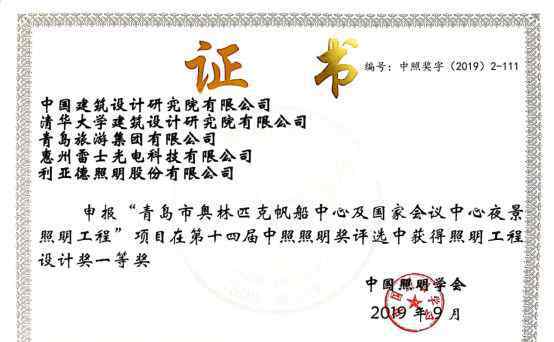 证 书
编号：中照奖字（2019）2-111
中国建筑设计研究院有限公司
清华大学建筑设计研究院有限公司
青岛旅游集团有限公司
惠州雷士光电科技有限公司
利亚德照明股份有限公司
申报“青岛市奥林匹克帆船中心及国家会议中心夜景
照明工程”项目在第十四届中照照明奖评选中获得照明工程
设计奖一等奖
中国照明学会
2019 年 9 月